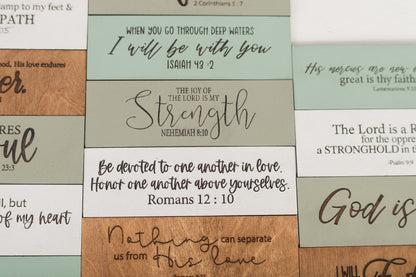 amp to my feet &
PATH
5:105
2 Corinthians 5:7
WHEN YOU GO THROUGH DEEP WATERS
I will be with you
ISAIAH 43:2
od, His love endures
er.
THE JOY OF
THE LORD IS MY
Strength
NEHEMIAH 8:10
RES
oul
23:3
Be devoted to one another in love.
Honor one another above yourselves.
Romans 12:10
ll, but
of my heart
Nothing can separate
us from His love
His mercies are new
great is thy faith
Lamentations
The Lord is a R
for the oppre
a STRONGHOLD in t
-Psalm 9:9
God is
I WILL